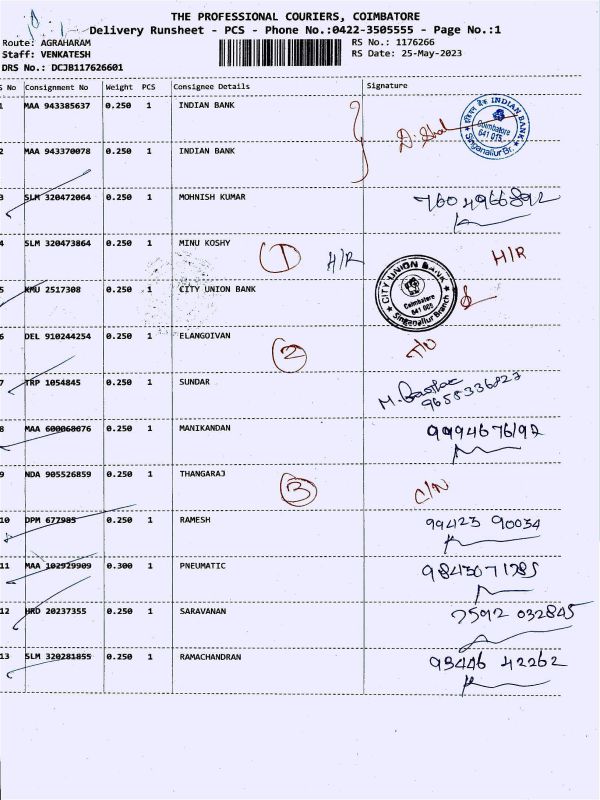 THE PROFESSIONAL COURIERS, COIMBATORE
Delivery Runsheet - PCS - Phone No.:0422-3505555 - Page No.:1
Route: AGRAHARAM RS No.: 1176266
Staff: VENKATESH RS Date: 25-May-2023
DRS No.: DCJB117626601
S No Consignment No Weight PCS Consignee Details Signature
1 MAA 943385637 0.250 1 INDIAN BANK
इंडियन बैंक INDIAN BANK Coimbatore 641 015. Singanallur Br.
2 MAA 943370078 0.250 1 INDIAN BANK
3 SLM 320472064 0.250 1 MOHNISH KUMAR 7604966892
4 SLM 320473864 0.250 1 MINU KOSHY 1 H/R H/R
5 KMU 2517308 0.250 1 CITY UNION BANK
CITY UNION BANK Coimbatore 641 005 Singanallur Branch
6 DEL 910244254 0.250 1 ELANGOIVAN 2
7 TRP 1054845 0.250 1 SUNDAR 9655336827
8 MAA 600068076 0.250 1 MANIKANDAN 9994676192
9 NDA 905526859 0.250 1 THANGARAJ 3 C/N
10 DPM 677985 0.250 1 RAMESH 99423 90034
11 MAA 102929909 0.300 1 PNEUMATIC 9843071285
12 HRD 20237355 0.250 1 SARAVANAN 7592 032845
13 SLM 320281855 0.250 1 RAMACHANDRAN 93446 42262